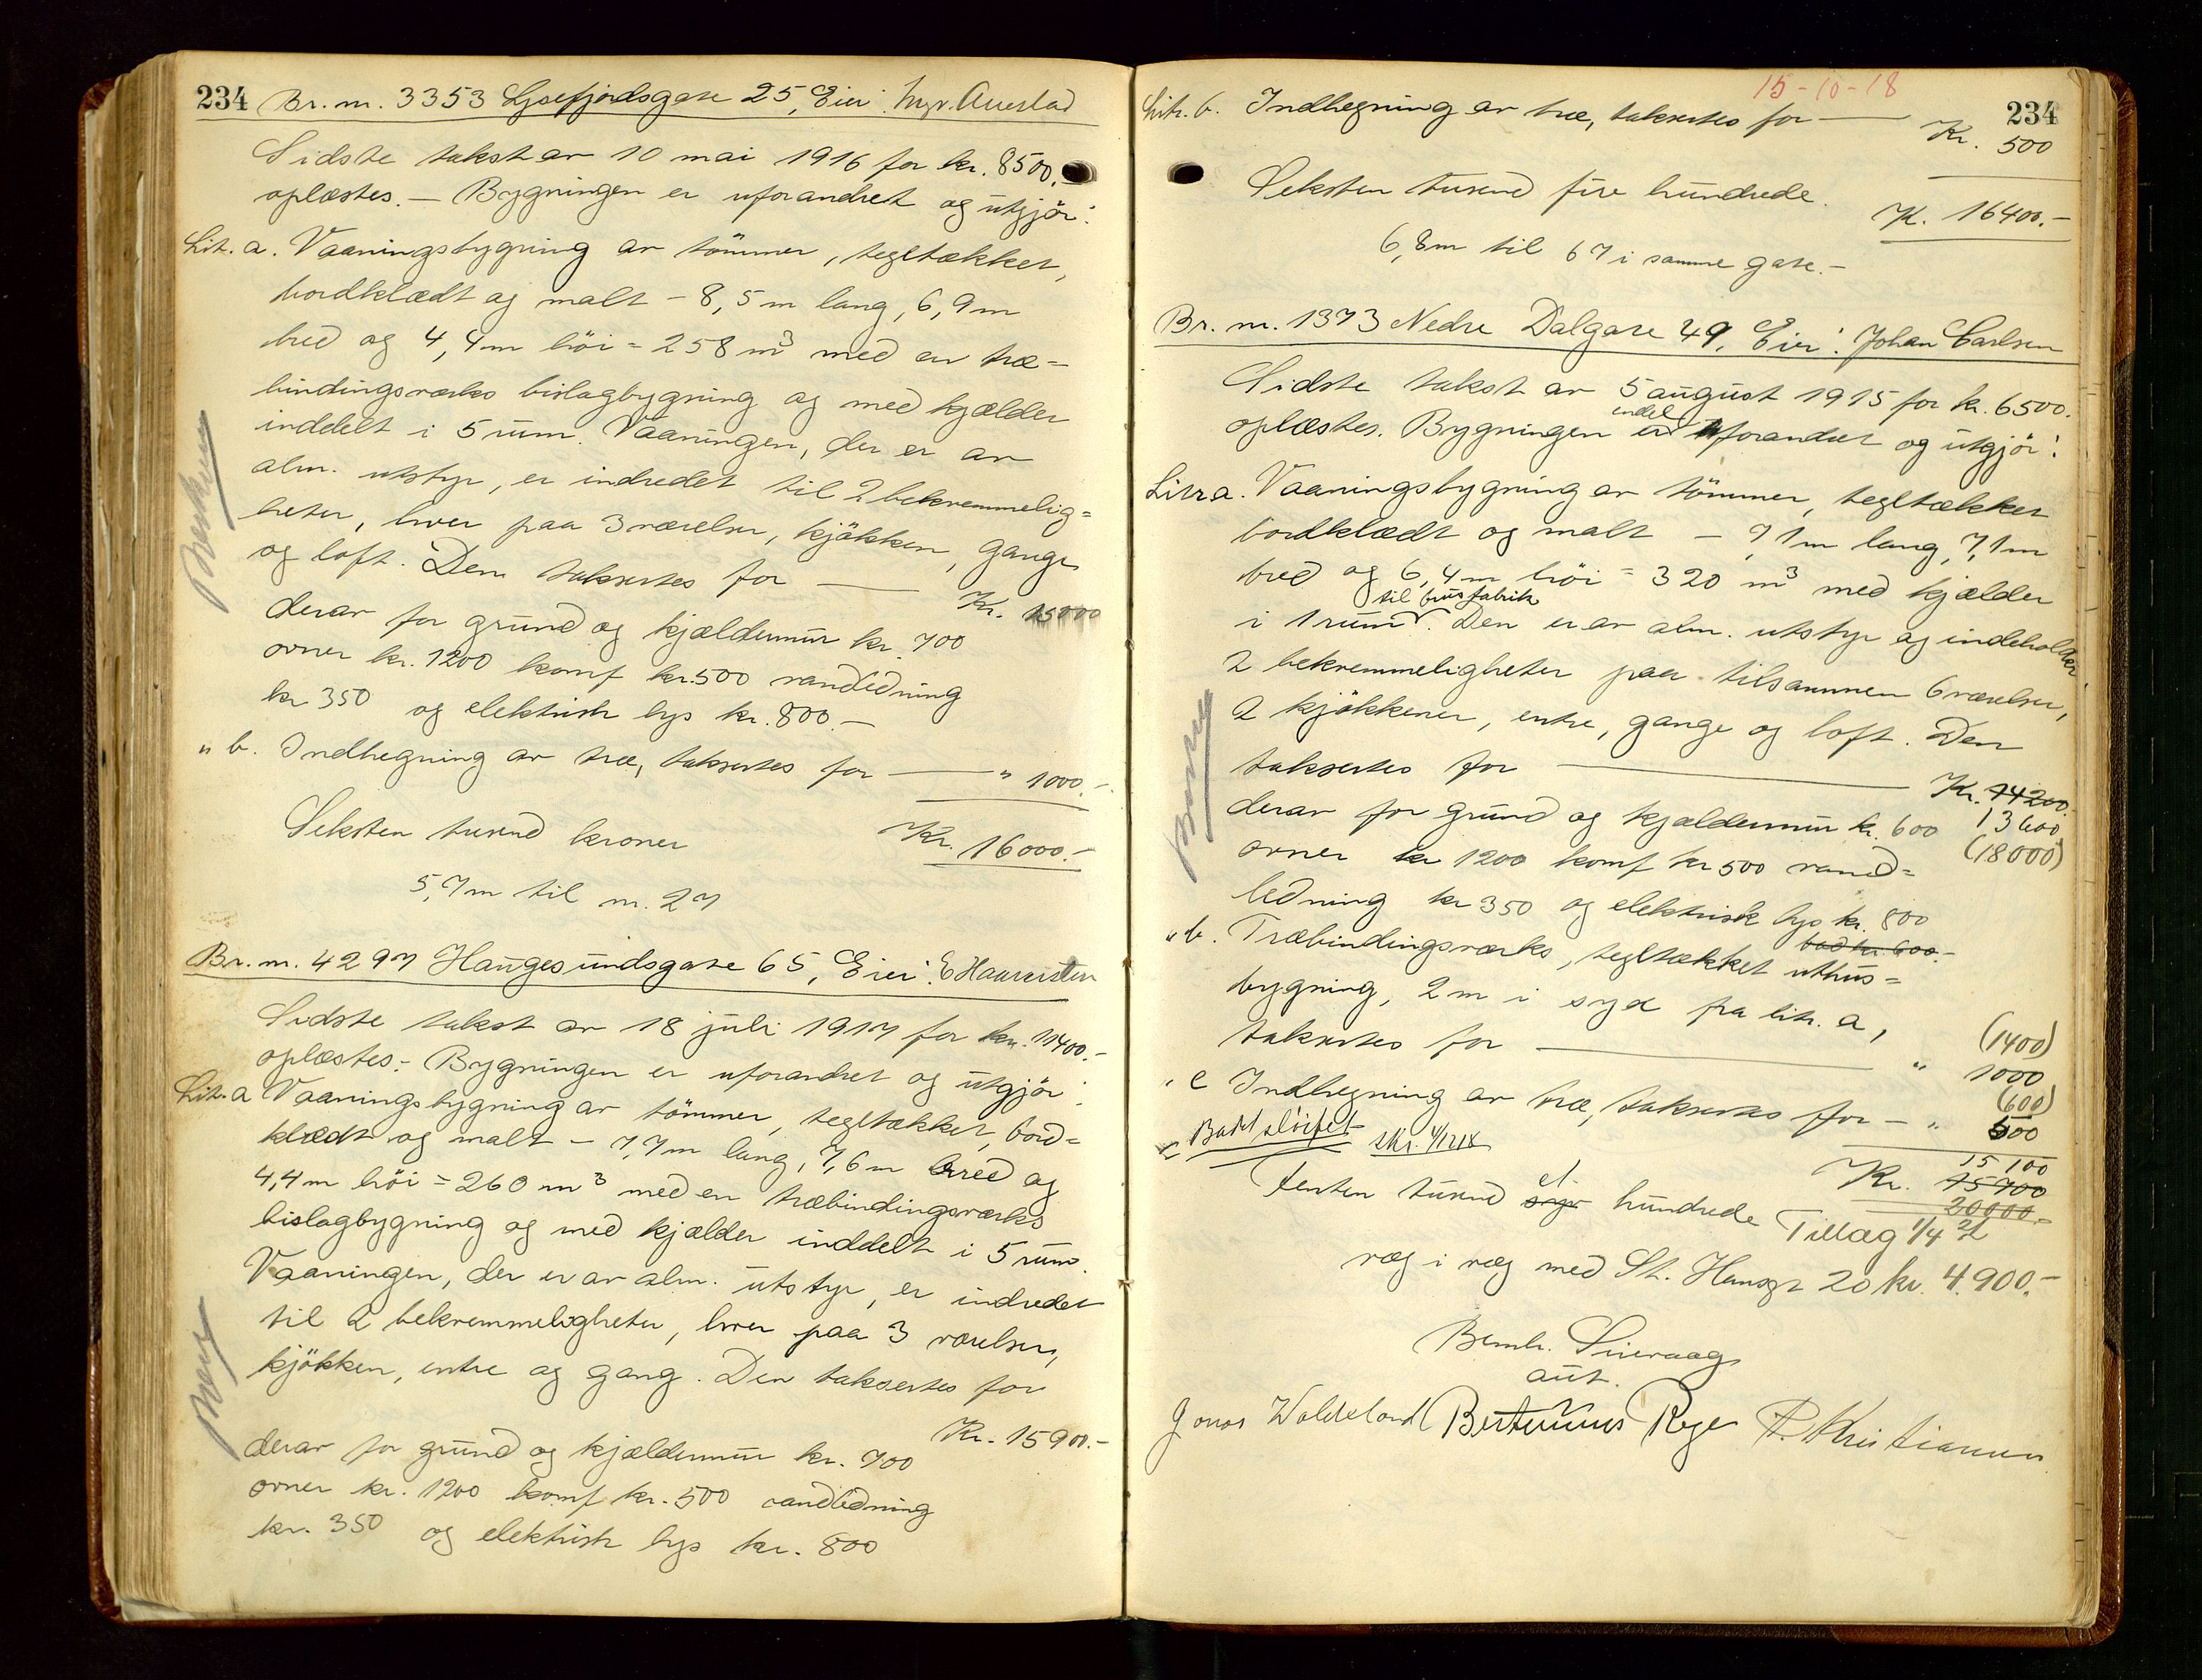 234 Br. nr. 3353 Lysefjordsgate 25, Eier: Ingv. Auestad
Sidste takst av 10 mai 1916 for kr. 8500.-
oplæstes. — Bygningen er uforandret og utgjör:
Lit. a. Vaaningsbygning av tömmer, tegltækket,
bordklædt og malt - 8,5m lang, 6,9m
bred og 4,4m höi = 258 m³ med en træ-
bindingsverks bislagbygning og med kjælder
inddelt i 5 rum. Vaaningen, der er av
alm. utstyr, er indredet til 2 bekvemmelig=
heter, hver paa 3 værelser, kjökken, gange
og loft. Den taksertes for — Kr. 15000
derav for grund og kjældermur kr. 700
ovner kr. 1200 komf kr. 500 vandledning
kr 350 og elektrisk lys kr. 800.-
" b. Indhegning av træ, taksertes for — " 1000.-
Seksten tusend kroner Kr. 16000.-
5,7m til nr. 27
Br. nr. 4297 Haugesundsgate 65, Eier: E Haaversten
Sidste takst av 18 juli 1917 for kr. 11400.-
oplæstes.- Bygningen er uforandret og utgjör:
Lit. a Vaaningsbygning av tömmer, tegltækket, bord=
klædt og malt - 7,7m lang, 7,6m bred og
4,4m höi = 260 m³ med en træbindingsverks
bislagbygning og med kjælder inddelt i 5 rum.
Vaaningen, der er av alm. utstyr, er indredet
til 2 bekvemmeligheter, hver paa 3 værelser,
kjökken, entre og gang. Den taksertes for
Kr. 15900.-
derav for grund og kjældermur kr. 700
ovner kr. 1200 komf kr. 500 vandledning
kr. 350 og elektrisk lys kr. 800
15-10-18
234
Litr. b. Indhegning av træ, taksertes for — Kr. 500
Seksten tusend fire hundrede. K. 16400.-
6,8m til 67 i samme gate.-
Br. nr. 1373 Nedre Dalgate 49, Eier: Johan Carlsen
Sidste takst av 5 august 1915 for kr. 6500.
oplæstes. Bygningen er forandret og utgjör:
Litr a. Vaaningsbygning av tömmer, tegltækket
bordklædt og malt - 7,1m lang, 7,1m
bred og 6,4m höi = 320 m³ med kjælder
til brusfabrik
i 1 rum. Den er av alm. utstyr og indeholder
2 bekvemmeligheter paa tilsammen 6 værelser,
2 kjökkener, entre, gange og loft. Den
taksertes for — Kr. 14200.
derav for grund og kjældermur kr. 600 13600
ovner kr 1200 komf kr 500 vand= (18000)
ledning kr 350 og elektrisk lys kr. 800
bad kr. 600.-
" b. Træbindingsverks, tegltækket uthus=
bygning, 2m i syd fra litr. a, (1400)
taksertes for — " 1000
" c Indhegning av træ, taksertes for — " (600)
500
Badet slöifet skr. 4/12 18
15100
Kr. 15700
20000.-
Femten tusend et hundrede
Tillæg 1/4 21
væg i væg med St. Hansgt 20 kr. 4.900.-
Bernh. Sieraag
aut.
Jonas Waldeland Bertinius Rege P. Kristiansen